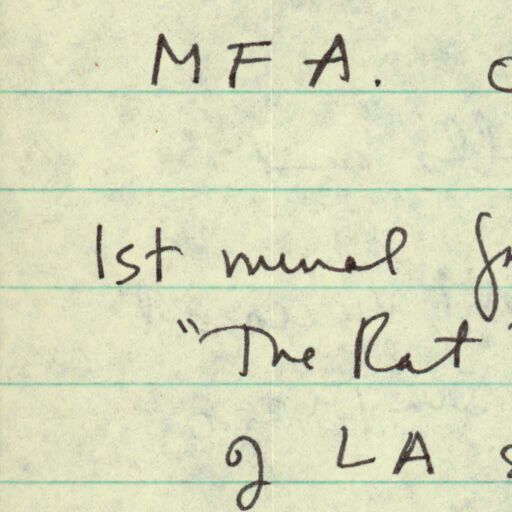 MFA.
1st mural
"The Rat"
of LA